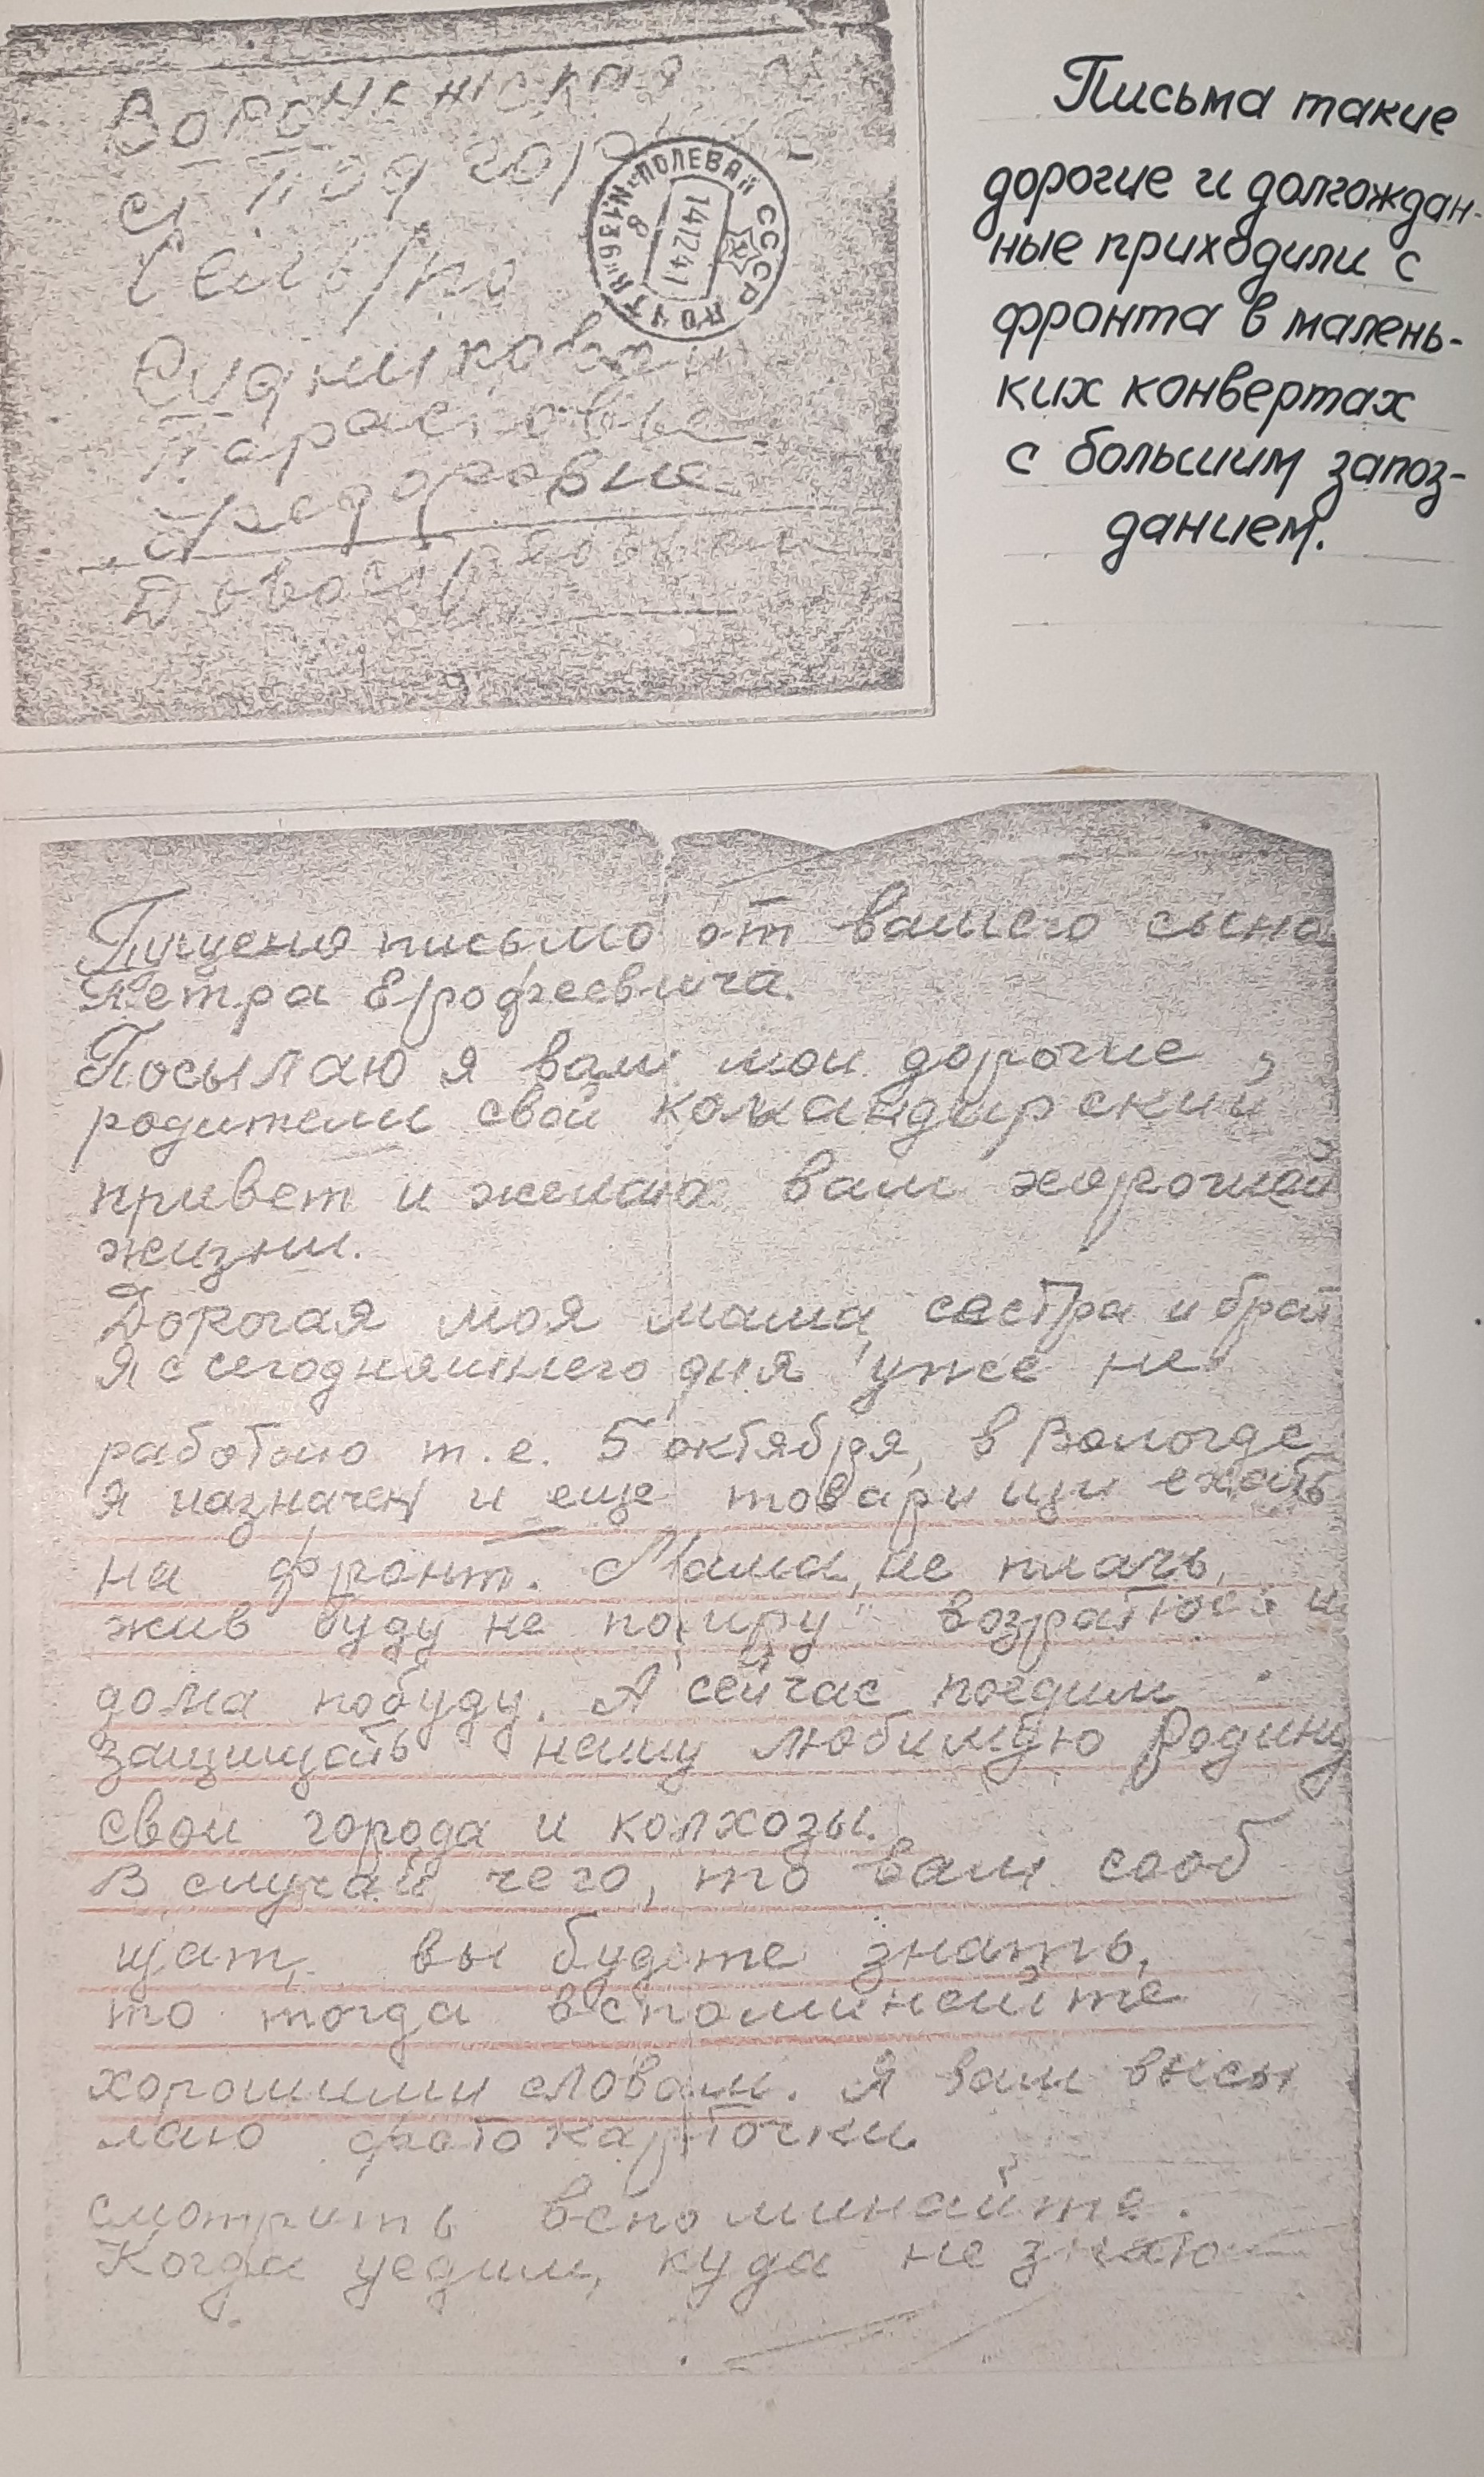 Воронежская
с. Подгорное
Сель/по
Сидниковой
Парасковье
Федоровне
ПОЛЕВАЯ СССР
ПОЧТА
141241
8
Письма такие
дорогие и долгождан-
ные приходили с
фронта в малень-
ких конвертах
с большим запоз-
данием.
Пущено письмо от вашего сына
Петра Ерофеевича.
Посылаю я вам мои дорогие
родители свой командирский
привет и желаю вам хорошей
жизни.
Дорогая моя мама, сестра и брат
Я с сегодняшнего дня уже не
работаю т.е. 5 октября, в Вологде
я назначен и еще товарищи ехать
на фронт. Мама, не плачь,
жив буду не помру возратюсь и
дома побуду. А сейчас поедим
защищать нашу любимую Родину
свои города и колхозы.
В случай чего, то вам сооб
щат, вы будете знать,
то тогда вспоминайте
хорошими словами. Я вам высы
лаю фотокарточки
смотрить вспоминайте.
Когда уедим, куда не знаю